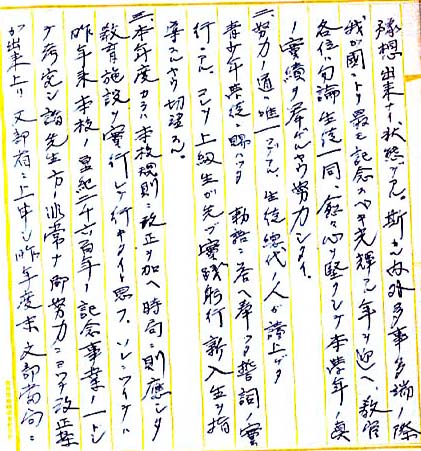 豫想出来ナイ状態デアル。斯カル内外多事多端ノ際
我ガ國トシテ最モ記念スベキ光輝アル年ヲ迎ヘ、教官
各位ハ勿論生徒一同、愈々心ヲ堅クシテ本學年ノ眞
ノ實績ヲ挙ゲルヤウ努力シタイ。
二、努力ノ通ハ唯一ツデアル。生徒總代ノ人ガ讀上ゲタ
青少年學徒ニ賜ハリタル勅語ニ答ヘ奉ツタ誓詞ノ實
行デアル。コレヲ上級生ガ先ヅ實踐躬行新入生ヲ指
導スルヤウ切望スル。
三、本年度カラハ本校規則ニ改正ヲ加ヘ時局ニ則應シタ
教育施設ヲ實行シテ行キタイト思フ。ソレニツイテハ
昨年来本校ノ皇紀二千六百年ノ記念事業ノ一トシ
テ考究シ諸先生方ノ非常ナ御努力ニヨツテ改正案
ガ出来上リ文部省ニ上申シ昨年度末文部當局ニ